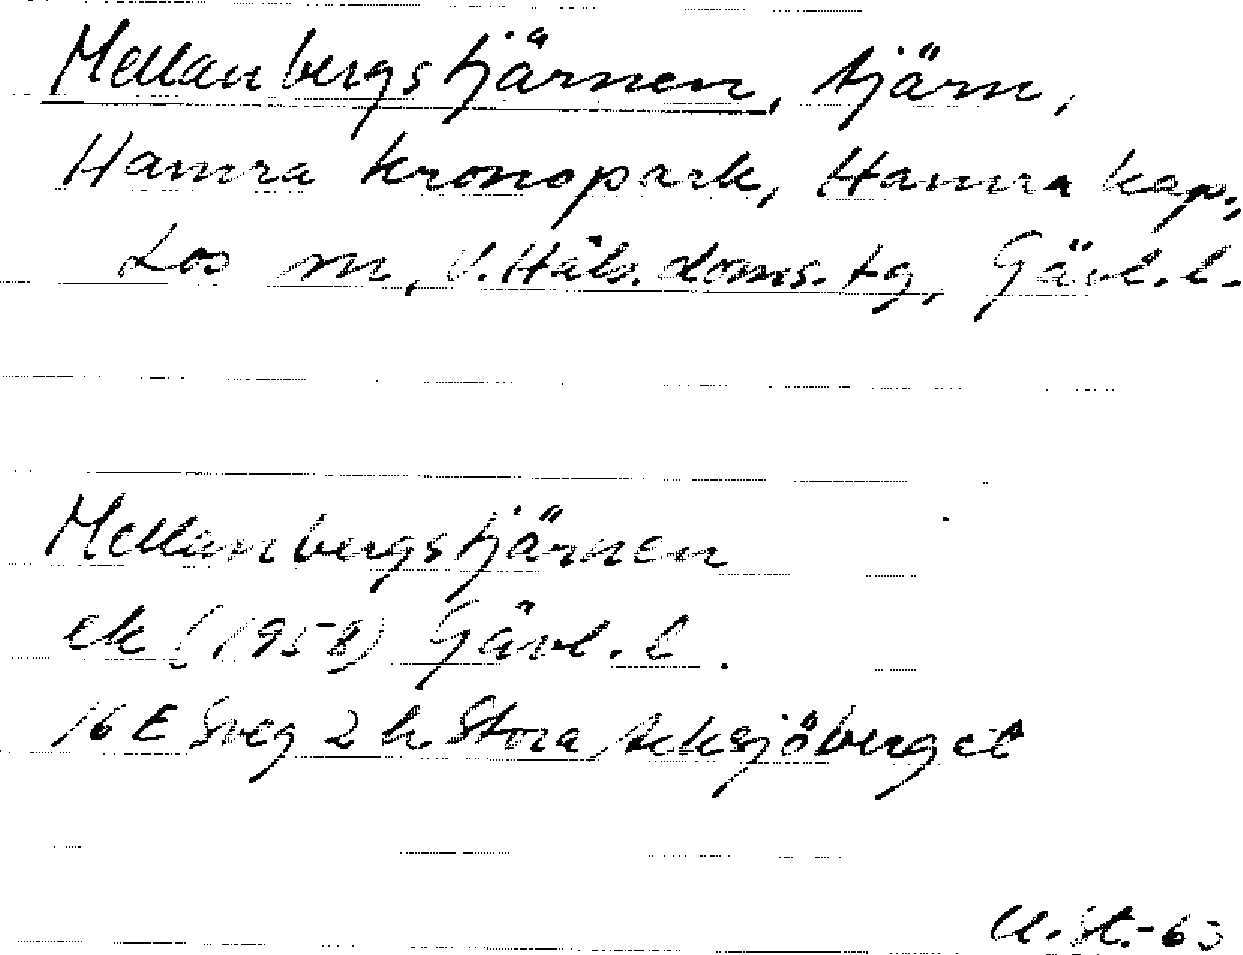 Mellanbergstjärnen, tjärn,
Hamra kronopark, Hamra kap.,
Los sn, V. Häls. doms. tg, Gävl. l.
Mellanbergstjärnen
ek (1958) Gävl. l.
16 E Sveg 2 h Stora Acksjöberget
U. St. -63